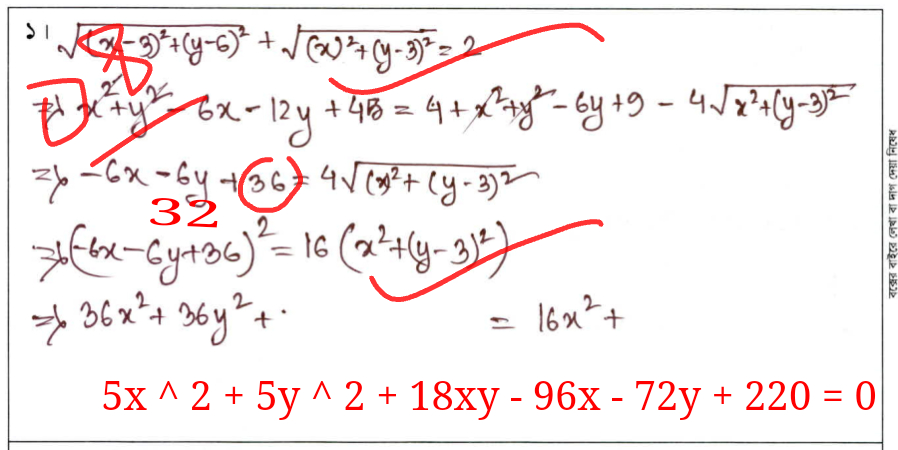 ১। √((x-3)²+(y-6)²) + √((x)²+(y-3)²) = 2
=> x²+y² - 6x - 12y + 45 = 4 + x²+y² - 6y + 9 - 4√(x²+(y-3)²)
=> -6x - 6y + 36 = 4√((x)²+(y-3)²)
32
=> (-6x-6y+36)² = 16(x²+(y-3)²)
=> 36x² + 36y² + · = 16x² +
5x ^ 2 + 5y ^ 2 + 18xy - 96x - 72y + 220 = 0
বক্সের বাইরে লেখা বা দাগ দেয়া নিষেধ